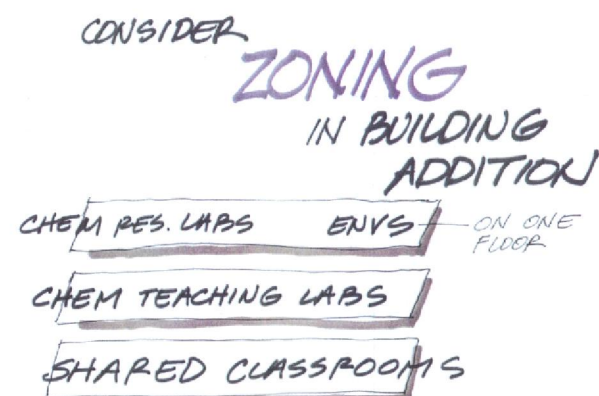 CONSIDER
ZONING
IN BUILDING
ADDITION
CHEM RES. LABS ENVS
ON ONE
FLOOR
CHEM TEACHING LABS
SHARED CLASSROOMS